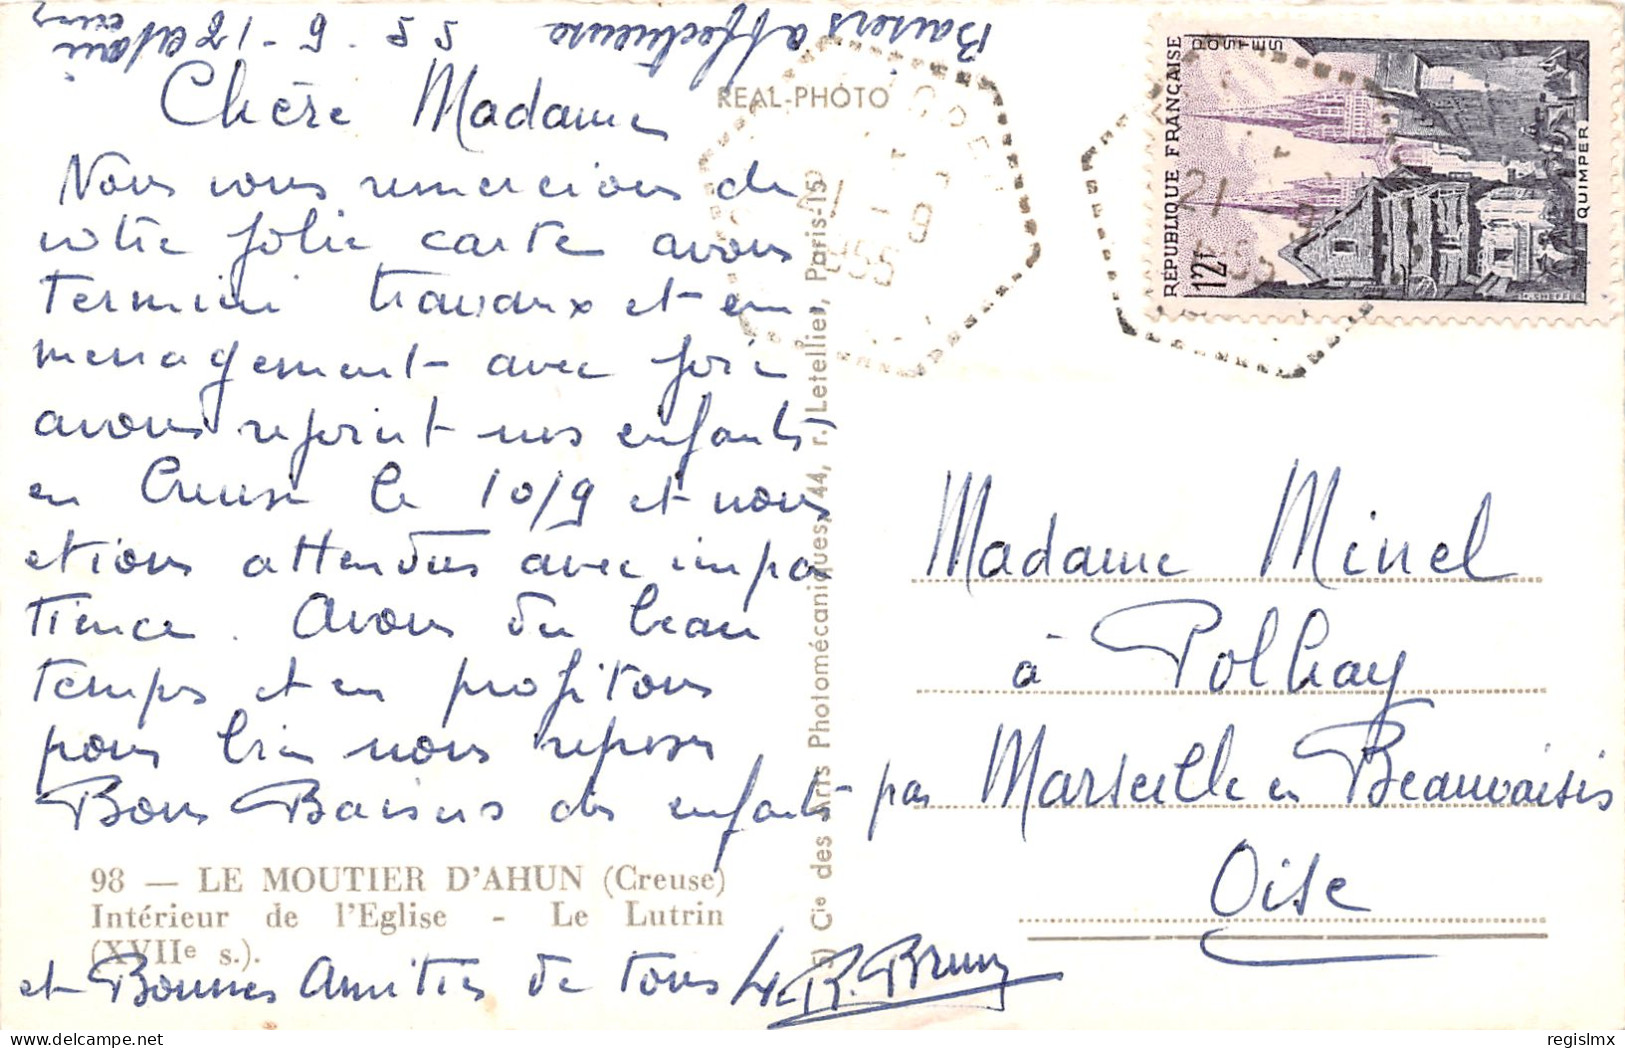 Baisers affectueux
21-9-55
Chère Madame
Nous vous remercions de
votre jolie carte avons
terminé travaux et em
menagement avec joie
avons rejoint nos enfants
en Creuse le 10/9 et nous
etions attendus avec impa
tience. Avons du beau
temps et en profitons
pour bien nous reposer
Bons Baisers des enfants
et Bonnes Amitiés de tous
98 — LE MOUTIER D'AHUN (Creuse)
Intérieur de l'Eglise - Le Lutrin
(XVIIe s.).
REAL-PHOTO
Cie des Arts Photomécaniques, 44, r. Letellier, Paris-15
RÉPUBLIQUE FRANÇAISE
POSTES
12f
QUIMPER
21-9
1955
Madame Minel
à Polhay
par Marseille en Beauvaisis
Oise
regislmx